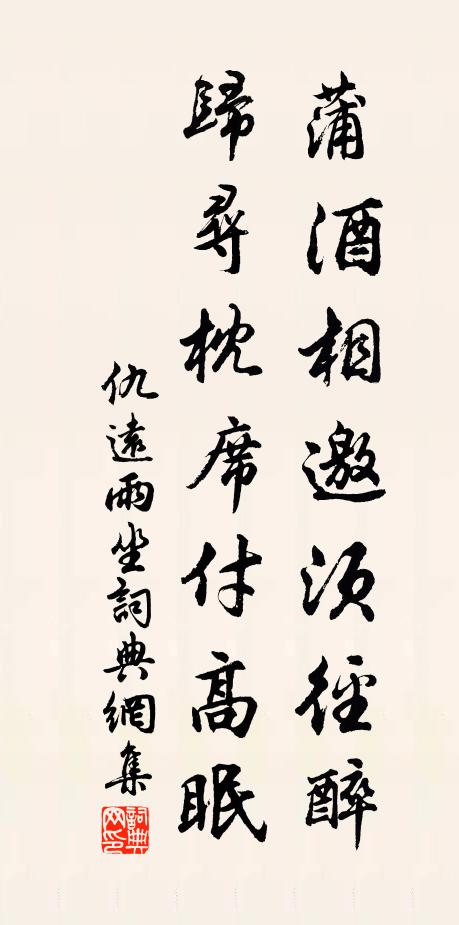 蒲酒相邀須徑醉
歸尋枕席付高眠
仇遠雨坐詞典網集
詞典网印